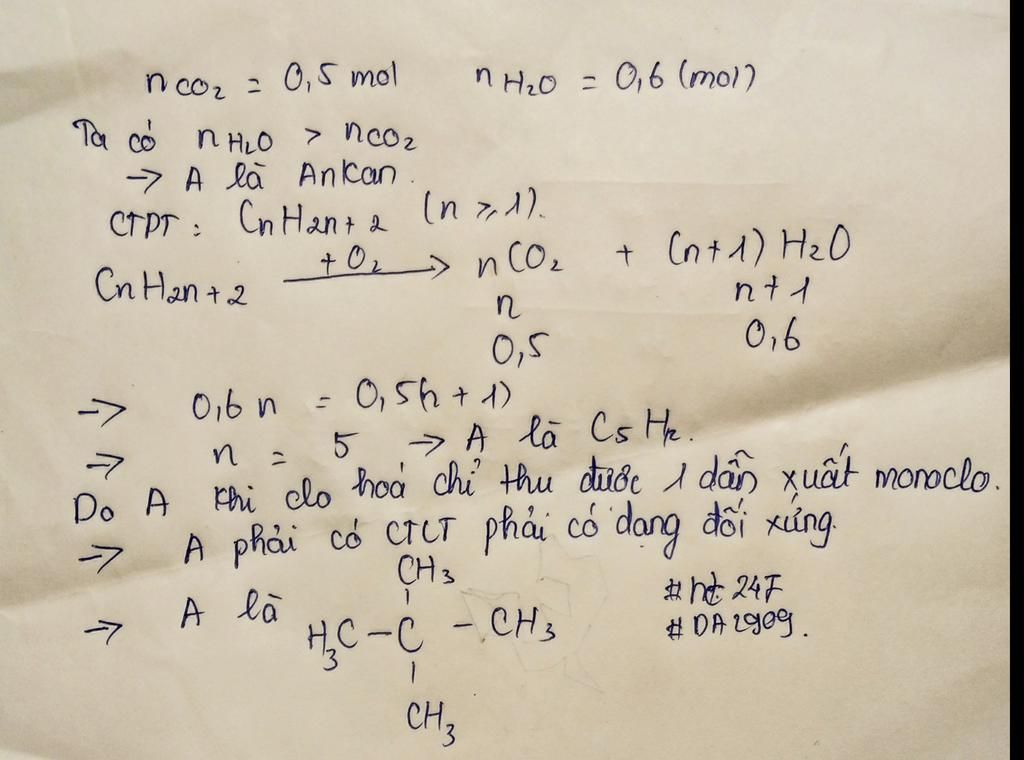 nCO2 = 0,5 mol nH2O = 0,6 (mol)
Ta có nH2O > nCO2
→ A là Ankan.
CTPT: CnH2n+2 (n ≥ 1).
CnH2n+2 + O2 → nCO2 + (n+1) H2O
n n+1
0,5 0,6
→ 0,6n = 0,5(n+1)
→ n = 5 → A là C5H12.
Do A khi clo hoá chỉ thu được 1 dẫn xuất monoclo.
→ A phải có CTCT phải có dạng đối xứng.
CH3
→ A là H3C - C - CH3
CH3
#ht 24F
#DA2909.